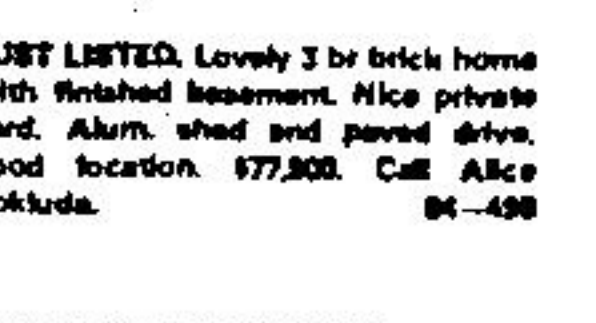 UST LISTED. Lovely 3 br brick home
ith finished basement. Nice private
ard. Alum. shed and paved drive.
ood location. Call Alice